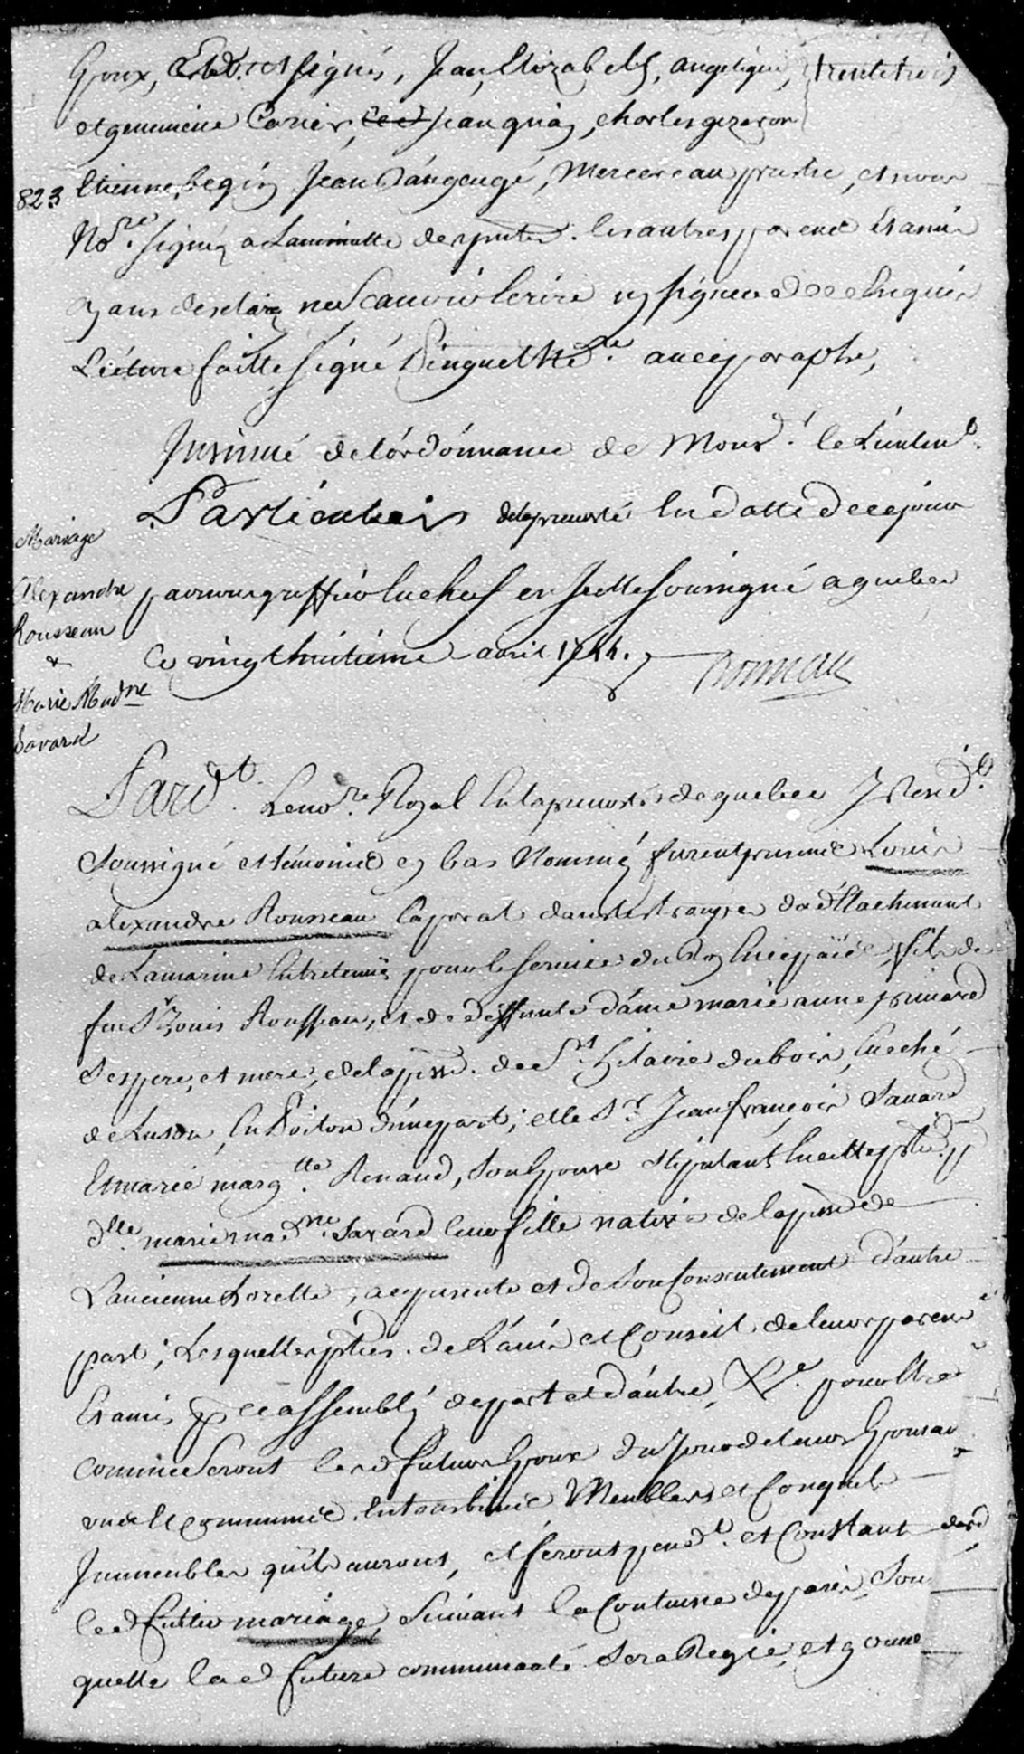 Epoux, signés, Jean, Elizabeth, angelique, trente trois
et genevieve Carier, Jean guay, charles
823 Etienne begin Jean dangeugé, Mercereau prestre, et nous
Nore. signé a Laminutte des presentes. les autres parens Et amis
ayans declaré ne Scavoir Ecrire ny signer de ce Enquis
Lecture faitte signé Pinguet Nre. avec paraphe,
Insinué de l'ordonnance de Monsr. le Lieutent.
Particulier delaprevosté En datte decejour
par nous greffier En chef en jcelle soussigné aquebec
Ce vingt huitieme avril 1744.
Mariage
Alexandre
Rousseau
&
Marie Madne
Savard
Pardt. Lenore. Royal En la prevosté de quebec y Residt.
Soussigné et témoins cy bas Nommés furent presens Louis
alexandre Rousseau Caporal dans les troupes du détachement
de Lamarine Entretenus pour le service du Roy En cepaïs, fils de
feu Sr. Louis Rousseau, et de deffunte dame marie anne prinard
Ses pere, et mere, de la pss. de St. hilaire du bois, Eveché
de Luson, En Poitou d'unepart; et le Sr. Jean françois Savard
Et marie margtte. Renaud, Son Epouse Stipulant En cette ptie. pr
dlle. marie madne. Savard leur fille native de la psse de
L'ancienne Lorette, a ce presente et de Son Consentement d'autre
part; Lesquelles pties. de L'avis et Conseil de leurs parens
Et amis pr ce assemblés de part et d'autre, pour Etre
Commins Seront les d futurs Epoux du jour de leurs Epousailles
un et Communs En tous biens Meubles et Conquets
Immeubles qu'ils auront, et feront pendt. et Constant
led futur mariage, Suivant la Coutume de paris, Sur
quelle la d future communauté Sera Regie, et gouver